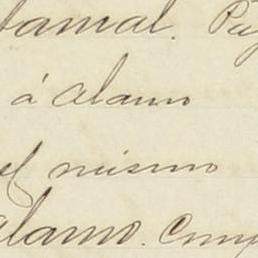 tamal. Pa
á alamo
el mismo
alamo. Comp